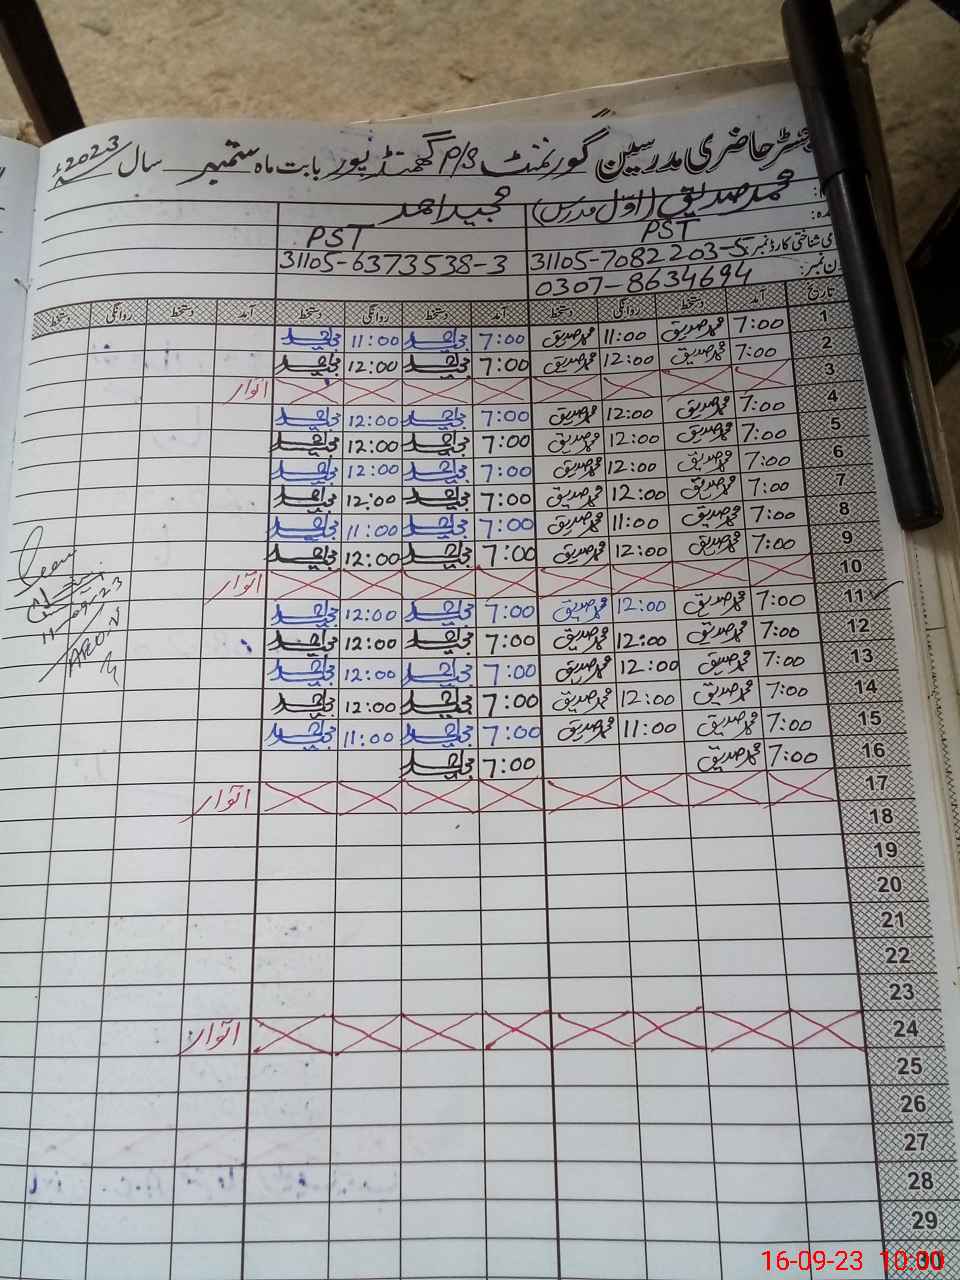 رجسٹر حاضری مدرسین گورنمنٹ P/S گھمنڈپور بابت ماہ ستمبر سال 2023ء
محمد صدیق (اوّل مدرس) مجید احمد
PST PST
شناختی کارڈ نمبر 31105-7082203-5 31105-6373538-3
فون نمبر: 0307-8634694
تاریخ آمد دستخط روانگی دستخط آمد دستخط روانگی دستخط آمد دستخط روانگی دستخط
1 7:00 محمد صدیق 11:00 محمد صدیق 7:00 مجید احمد 11:00 مجید احمد
2 7:00 محمد صدیق 12:00 محمد صدیق 7:00 مجید احمد 12:00 مجید احمد
3 اتوار
4 7:00 محمد صدیق 12:00 محمد صدیق 7:00 مجید احمد 12:00 مجید احمد
5 7:00 محمد صدیق 12:00 محمد صدیق 7:00 مجید احمد 12:00 مجید احمد
6 7:00 محمد صدیق 12:00 محمد صدیق 7:00 مجید احمد 12:00 مجید احمد
7 7:00 محمد صدیق 12:00 محمد صدیق 7:00 مجید احمد 12:00 مجید احمد
8 7:00 محمد صدیق 11:00 محمد صدیق 7:00 مجید احمد 11:00 مجید احمد
9 7:00 محمد صدیق 12:00 محمد صدیق 7:00 مجید احمد 12:00 مجید احمد
10 اتوار
11 7:00 محمد صدیق 12:00 محمد صدیق 7:00 مجید احمد 12:00 مجید احمد
12 7:00 محمد صدیق 12:00 محمد صدیق 7:00 مجید احمد 12:00 مجید احمد
13 7:00 محمد صدیق 12:00 محمد صدیق 7:00 مجید احمد 12:00 مجید احمد
14 7:00 محمد صدیق 12:00 محمد صدیق 7:00 مجید احمد 12:00 مجید احمد
15 7:00 محمد صدیق 11:00 محمد صدیق 7:00 مجید احمد 11:00 مجید احمد
16 7:00 محمد صدیق 7:00 مجید احمد
17 اتوار
18
19
20
21
22
23
24 اتوار
25
26
27
28
29
30
Seen
11-09-23
16-09-23 10:00